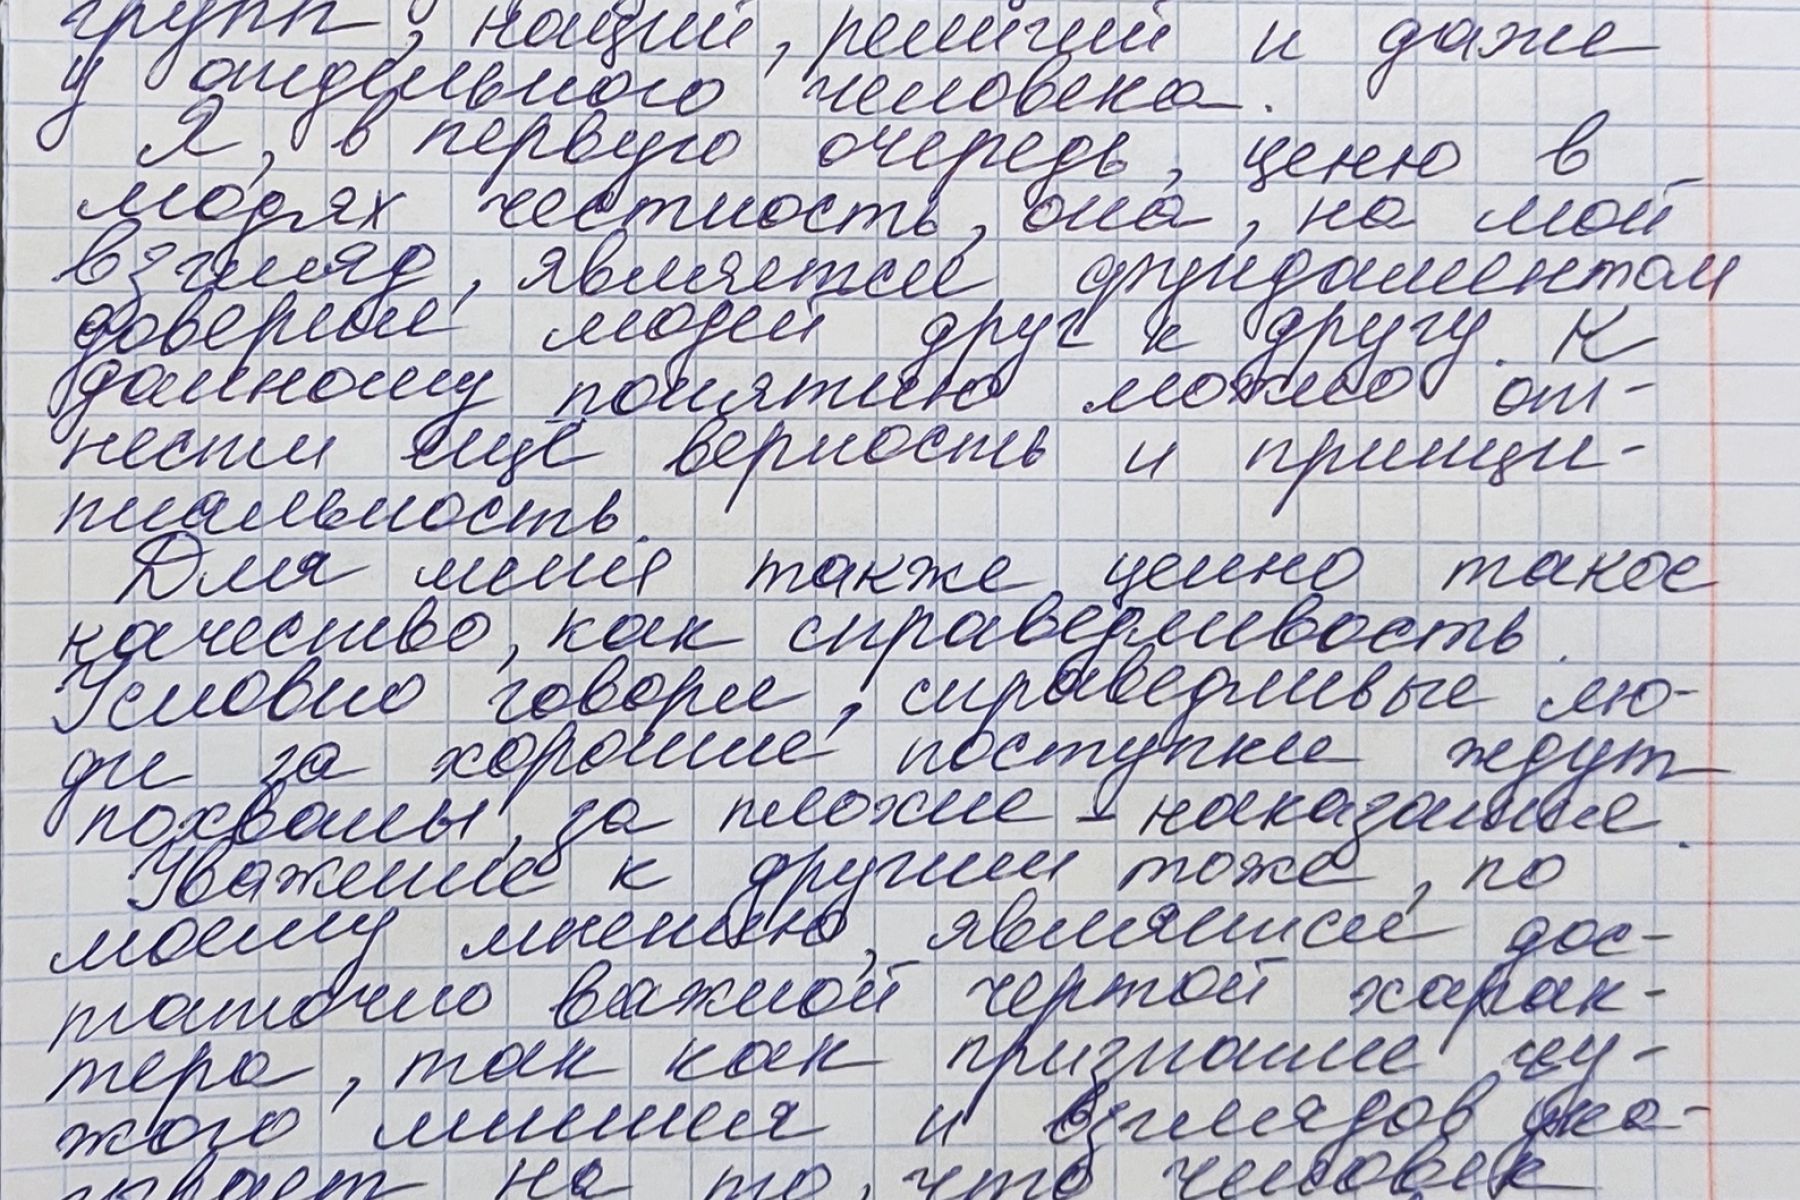 групп, наций, религий и даже
у отдельного человека.
Я, в первую очередь, ценю в
людях честность, она, на мой
взгляд, является фундаментом
доверия людей друг к другу. К
данному понятию можно от-
нести ещё верность и принци-
пиальность.
Для меня также ценно такое
качество, как справедливость.
Условно говоря, справедливые лю-
ди за хорошие поступки ждут
похвалы, за плохие - наказание.
Уважение к другим тоже, по
моему мнению, является дос-
таточно важной чертой харак-
тера, так как признание чу-
жого мнения и взглядов ука-
зывает на то, что человек